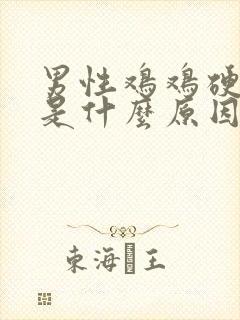 男性鸡鸡硬
是什麼原因
東海 王